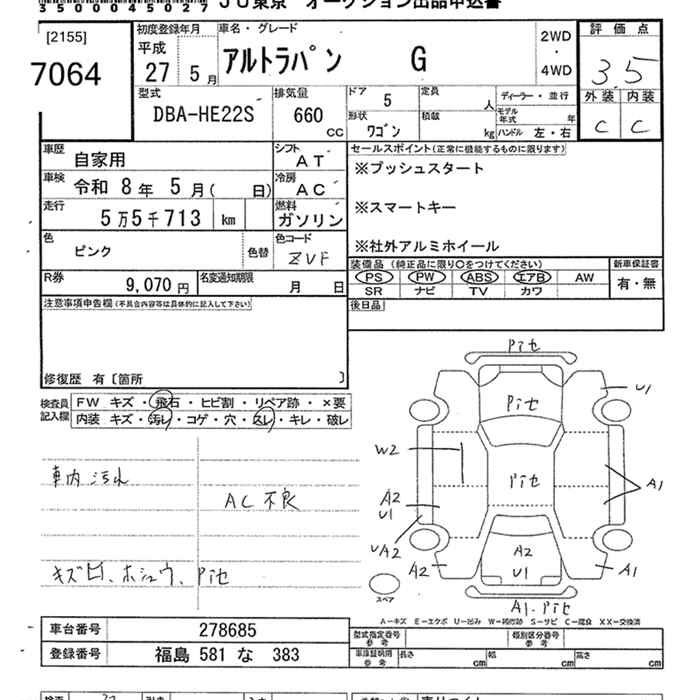 350045027 JU東京 オークション出品申込書
[2155]
7064
初度登録年月
平成
27 5月
車名・グレード
アルトラパン G
2WD
・
4WD
評価点
3.5
外装 内装
C C
型式
DBA-HE22S
排気量
660
CC
ドア
5
定員
人
形状
ワゴン
積載
kg
ディーラー・並行
モデル年式 年
ハンドル 左・右
車歴
自家用
シフト
AT
車検
令和 8年 5月( 日)
冷房
AC
走行
5万5千713 km
燃料
ガソリン
色
ピンク
色替
色コード
ZVF
R券
9,070円
名変通知期限
月 日
セールスポイント(正常に機能するものに限ります)
※プッシュスタート
※スマートキー
※社外アルミホイール
装備品(純正品に限り○をつけてください)
新車保証書
PS PW ABS エアB AW
SR ナビ TV カワ
有・無
後日品
注意事項申告欄(不具合内容等は具体的に記入して下さい)
修復歴 有〔箇所 〕
検査員記入欄
FW キズ・飛石・ヒビ割・リペア跡・×要
内装 キズ・汚レ・コゲ・穴・スレ・キレ・破レ
車内汚れ
AC不良
キズ凹、ホシュウ、Pitセ
Pitセ
Pitセ
U1
W2
Pitセ
A1
A2
U1
UA2
A2
A2
U1
A1
A1.Pitセ
スペア
A-キズ E-エクボ U-凹み W-補修跡 S-サビ C-腐食 XX-交換済
車台番号
278685
登録番号
福島 581 な 383
型式指定番号
参考
類別区分番号
参考
車庫証明用
参考
長さ cm
幅 cm
高さ cm